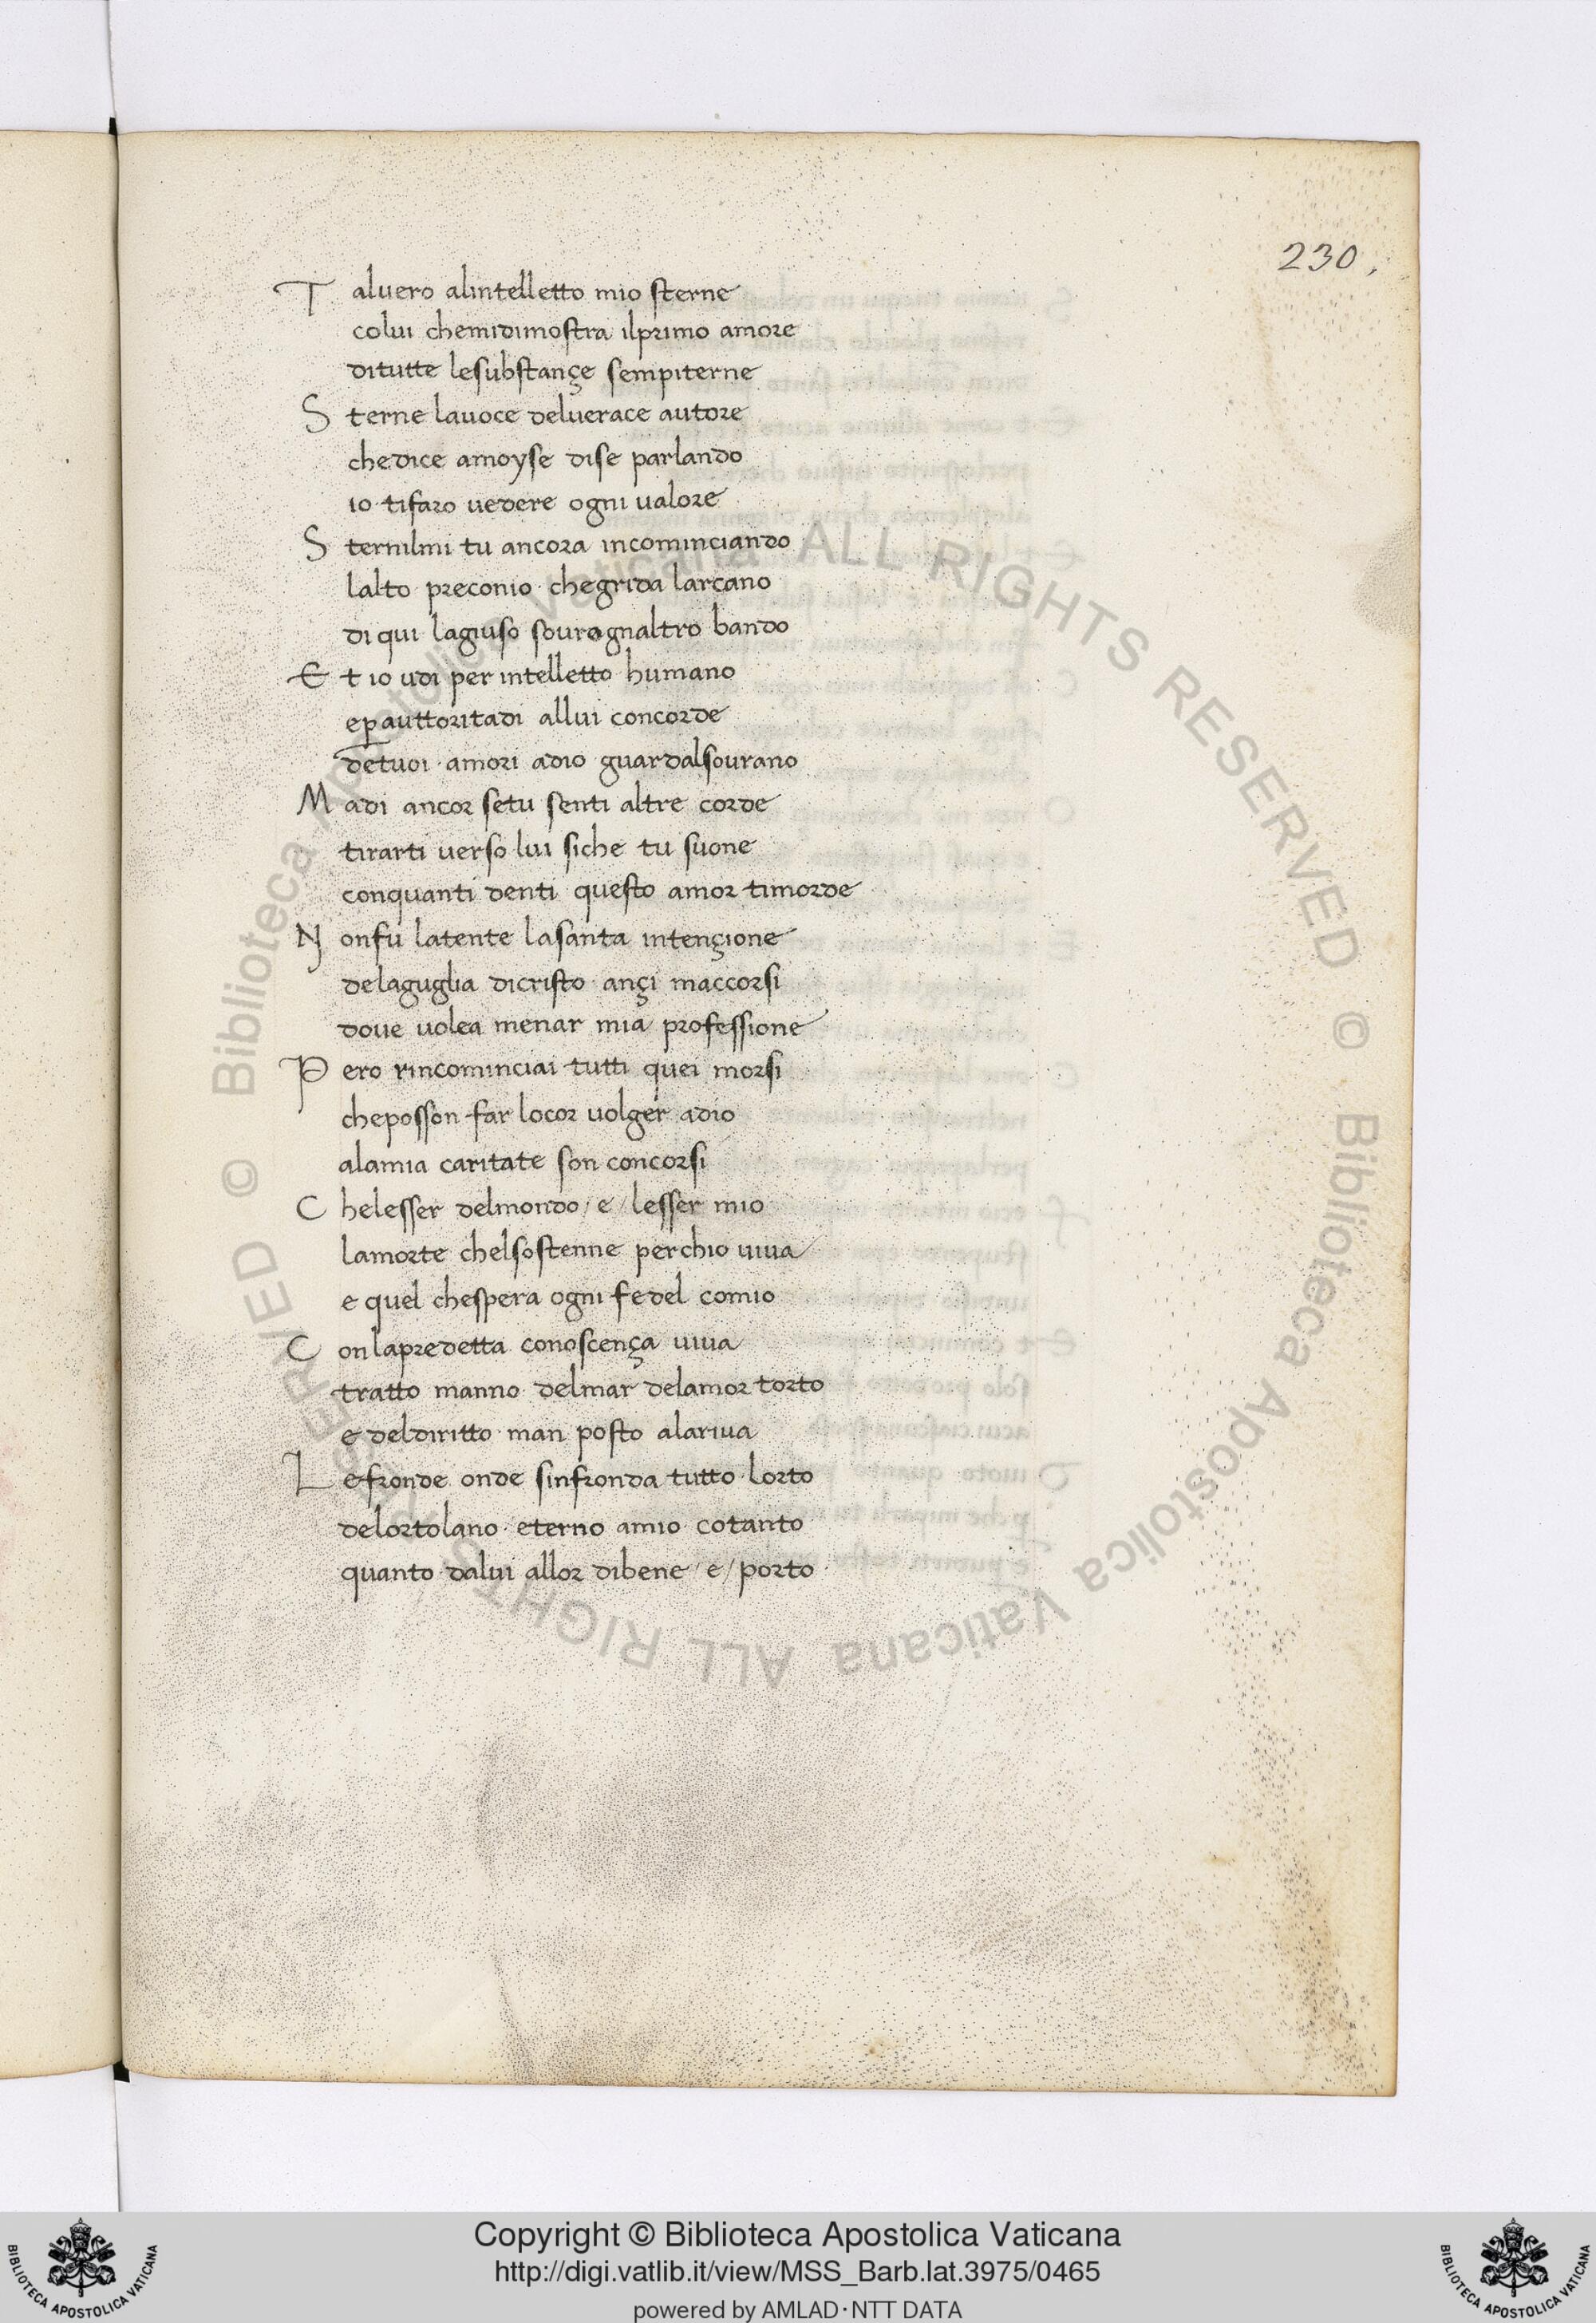 230.
T aluero alintelletto mio sterne
colui chemidimostra ilprimo amore
ditutte lesubstançe sempiterne
S terne lauoce deluerace autore
chedice amoyse dise parlando
io tifaro uedere ogni ualore
S ternilmi tu ancora incominciando
lalto preconio chegrida larcano
di qui lagiuso souragnaltro bando
E t io udi per intelletto humano
eꝑauttoritadi allui concorde
detuoi amori adio guardalsourano
M adi ancor setu senti altre corde
tirarti uerso lui siche tu suone
conquanti denti questo amor timorde
N onfu latente lasanta intençione
delaguglia dicristo ançi maccorsi
doue uolea menar mia professione
P ero rincominciai tutti quei morsi
cheposson far locor uolger adio
alamia caritate son concorsi
C helesser delmondo / e / lesser mio
lamorte chelsostenne perchio uiua
e quel chespera ogni fedel comio
C onlapredetta conoscença uiua
tratto manno delmar delamor torto
e deldiritto man posto alariua
L efronde onde sinfronda tutto lorto
delortolano eterno amio cotanto
quanto dalui allor dibene / e / porto
© Biblioteca Apostolica Vaticana ALL RIGHTS RESERVED © Biblioteca Apostolica Vaticana ALL RIGHTS RESERVED
BIBLIOTECA APOSTOLICA VATICANA
Copyright © Biblioteca Apostolica Vaticana
http://digi.vatlib.it/view/MSS_Barb.lat.3975/0465
powered by AMLAD·NTT DATA
BIBLIOTECA APOSTOLICA VATICANA